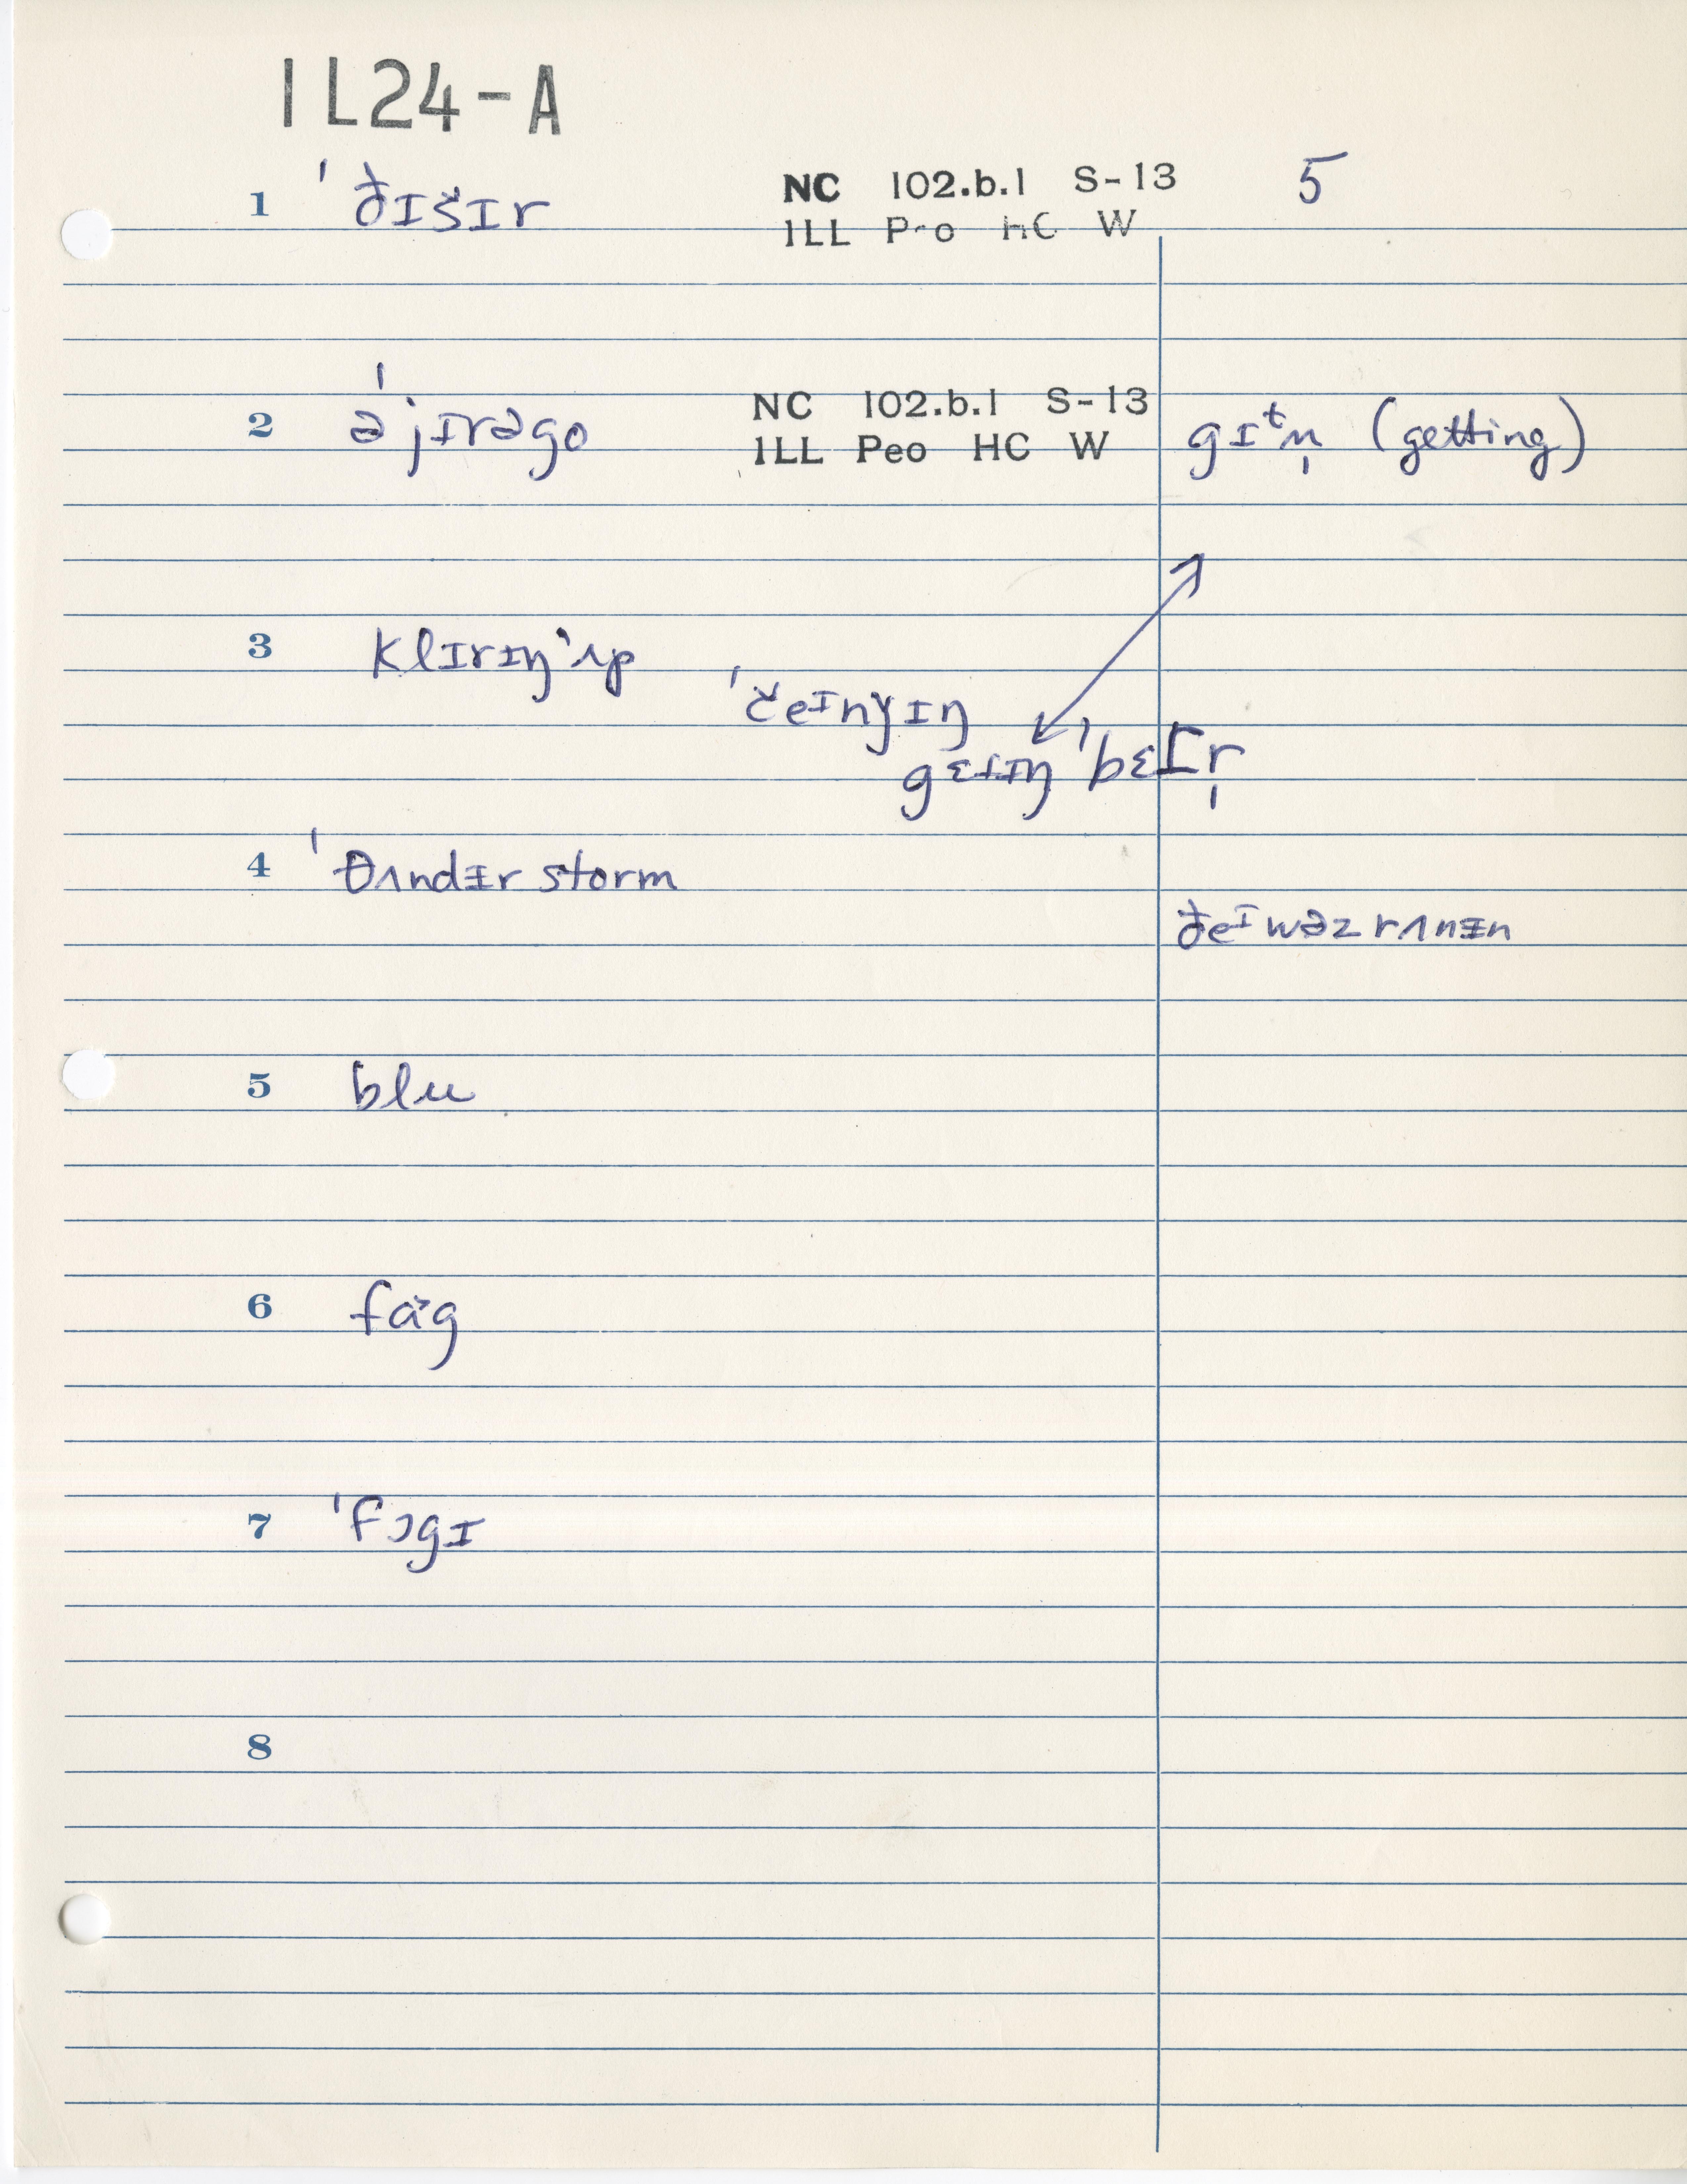 IL24-A
1 ˈðɪšɪr NC 102.b.1 S-13 5
ILL Peo HC W
2 əˈjɪrəgo NC 102.b.1 S-13
ILL Peo HC W gɪᵗn̩ (getting)
3 klɪrɪŋˈʌp
ˈčeᶦnǰɪŋ
gɛtɪŋ ˈbɛtr̩
4 ˈθʌndᵻr storm
ðeᶦ wəz rʌnᵻn
5 blu
6 fag
7 ˈfɔgɪ
8